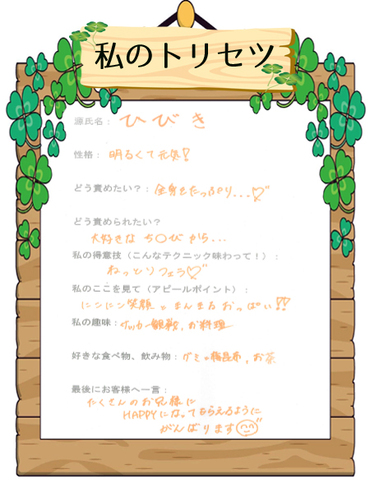 私のトリセツ
源氏名：ひびき
性格：明るくて元気!
どう責めたい？：全身をたっぷり...♡
どう責められたい？
大好きなち〇びから...
私の得意技（こんなテクニック味わって！）：
ねっとりフェラ♡
私のここを見て（アピールポイント）：
ニコニコ笑顔とまんまるおっぱい!!
私の趣味：サッカー観戦、お料理
好きな食べ物、飲み物：グミ、お茶
最後にお客様へ一言：
たくさんのお兄様に
HAPPYになってもらえるように
がんばります